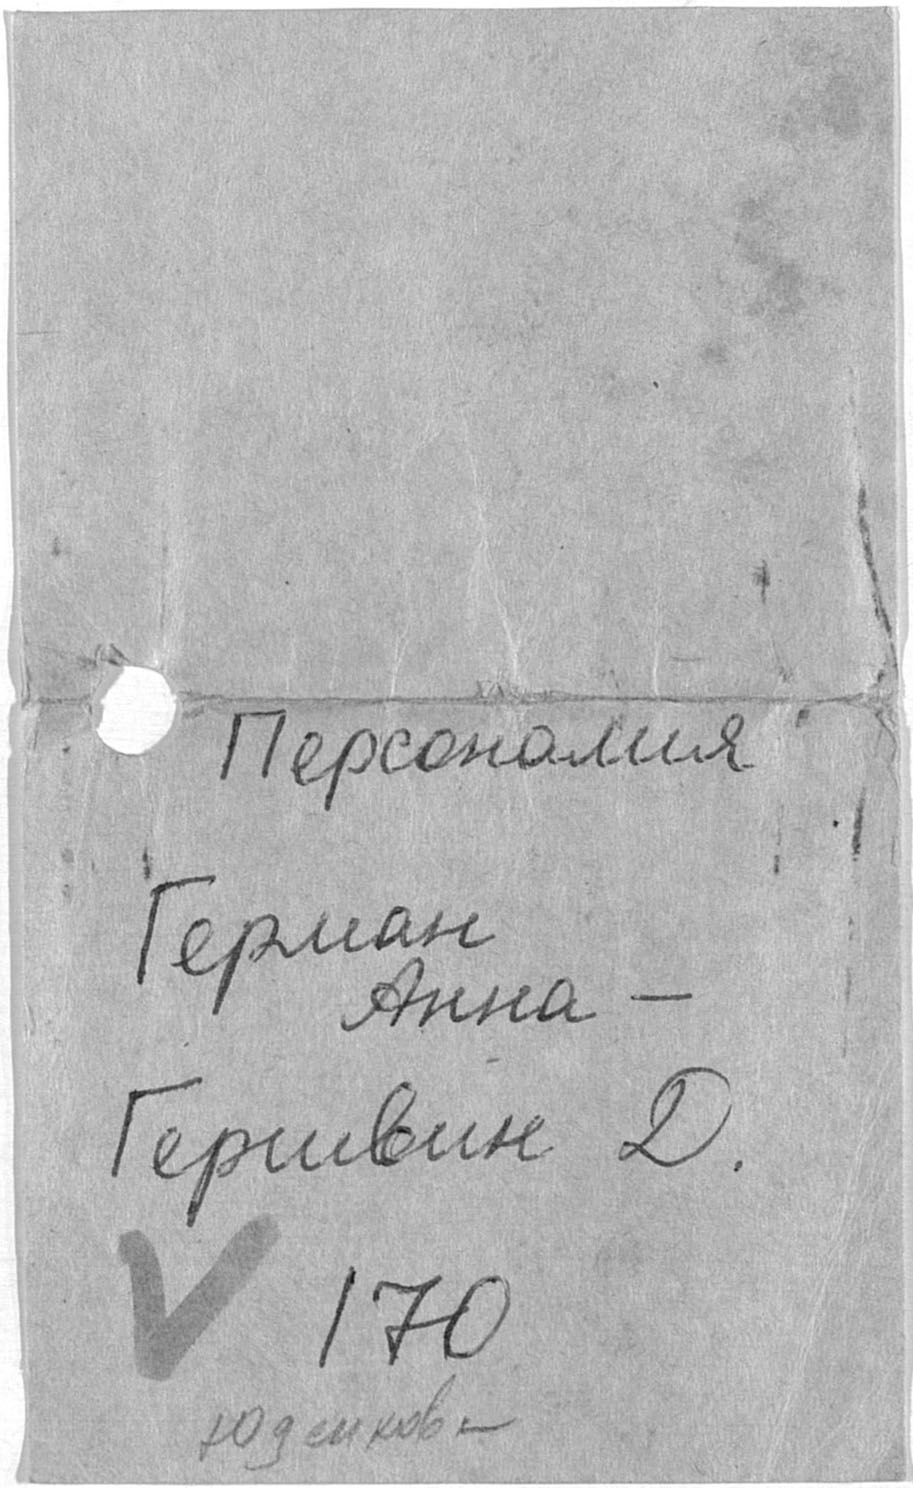 Персоналия
Герман
Анна —
Гершвин Д.
170